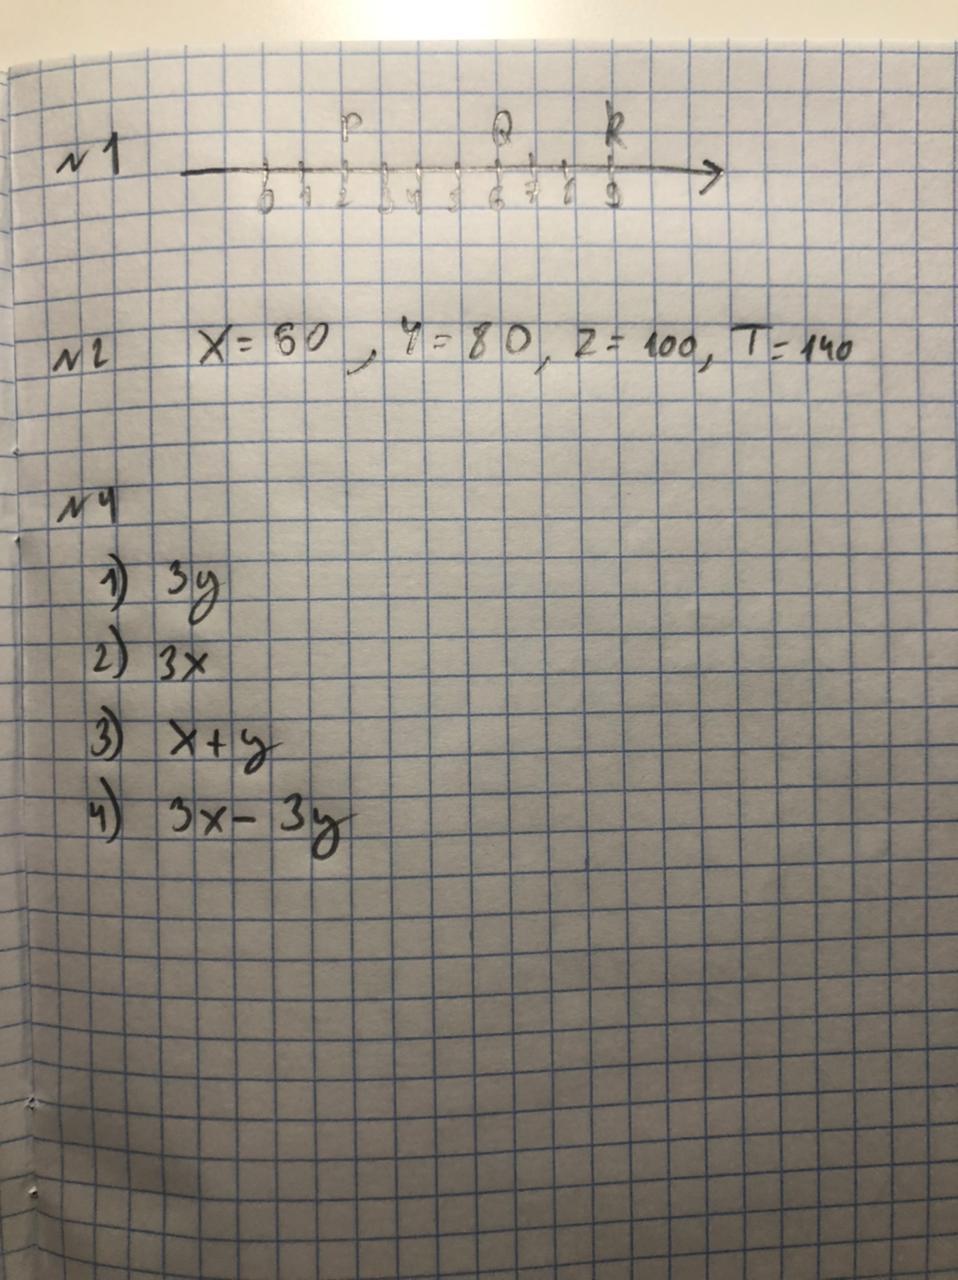 P Q R
№1
0 1 2 3 4 5 6 7 8 9
№2 X = 60, Y = 80, Z = 100, T = 140
№4
1) 3y
2) 3x
3) x + y
4) 3x - 3y